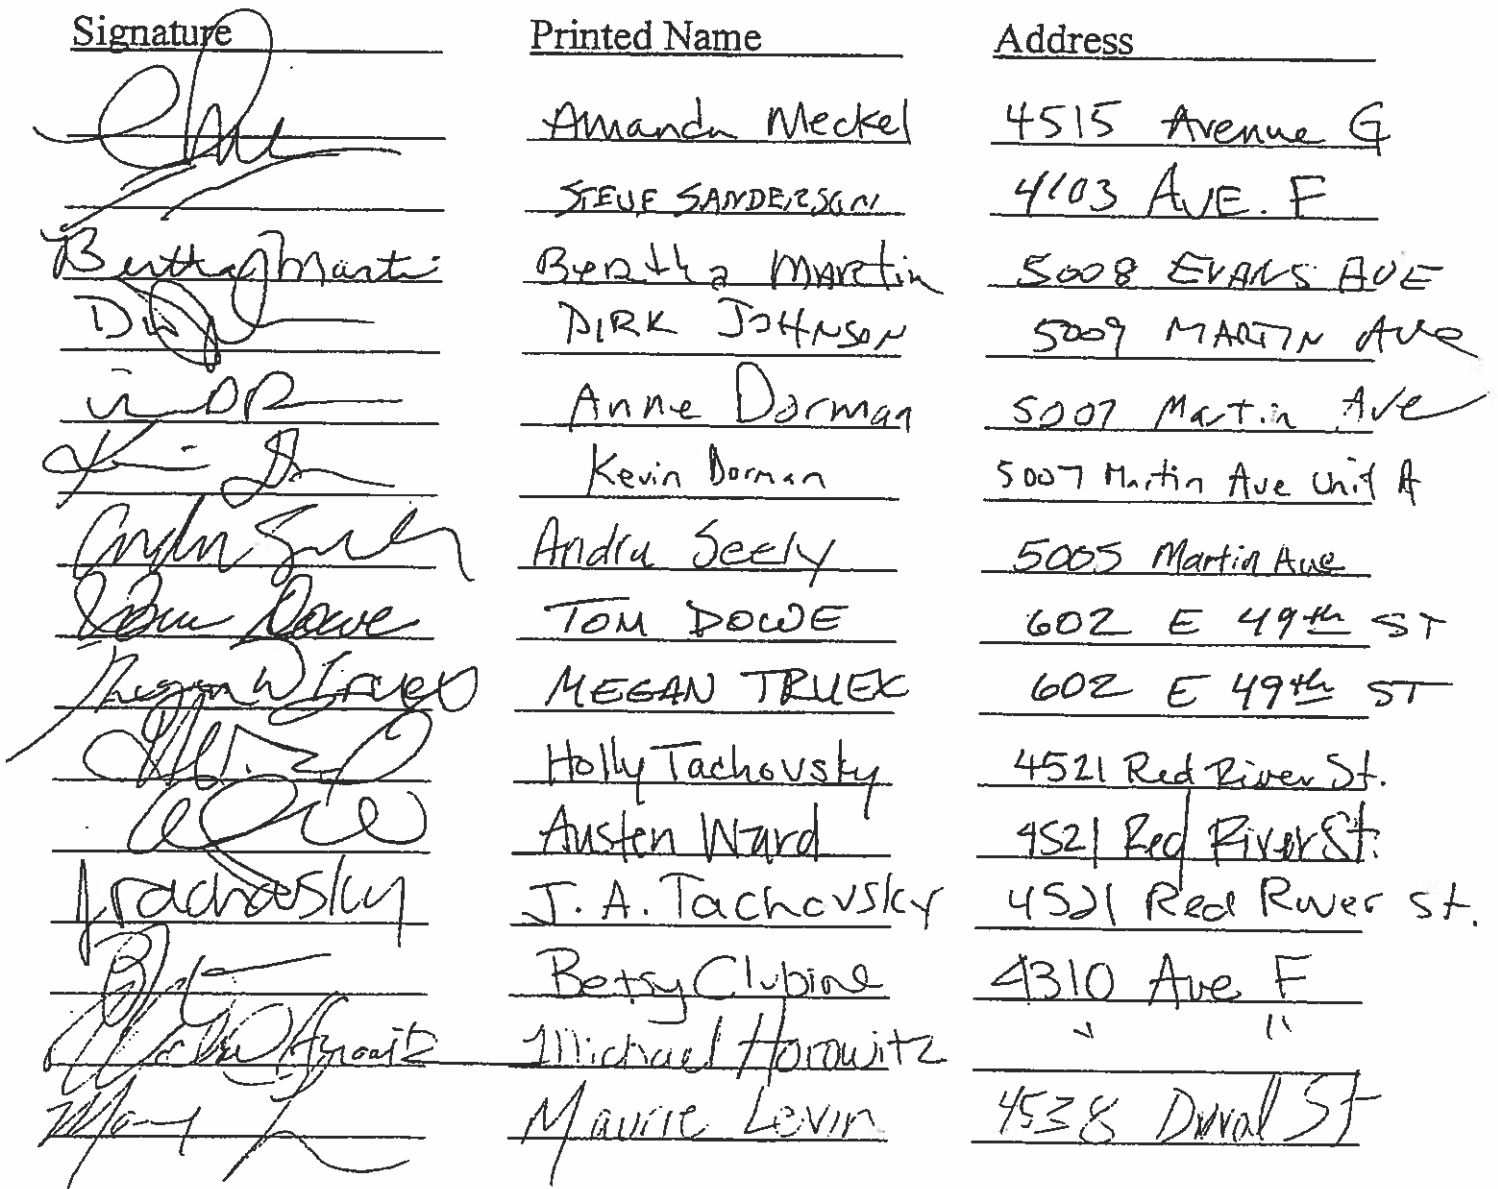 Signature Printed Name Address
Amanda Meckel 4515 Avenue G
STEVE SANDERSON 4103 AVE. F
Bertha Martin Bertha MARtin 5008 EVANS AVE
DIRK JOHNSON 5009 MARTIN AVE
Anne Dorman 5007 Martin Ave
Kevin Dorman 5007 Martin Ave Unit A
Seely 5005 Martin Ave
Tom Dowe TOM DOWE 602 E 49th ST
Megan W Truex MEGAN TRUEX 602 E 49th ST
Holly Tachovsky 4521 Red River St.
Austen Ward 4521 Red River St.
J Tachovsky J. A. Tachovsky 4521 Red River St.
Betsy Clubine 4310 Ave F
Horowitz Michael Horowitz " "
Maurie Levin 4538 Duval St